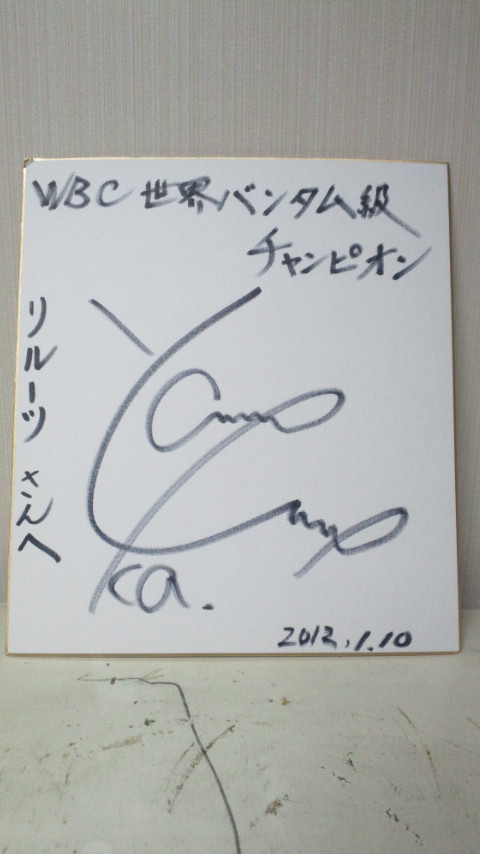 WBC世界バンタム級
チャンピオン
リルーツさんへ
Ka.
2012.1.10